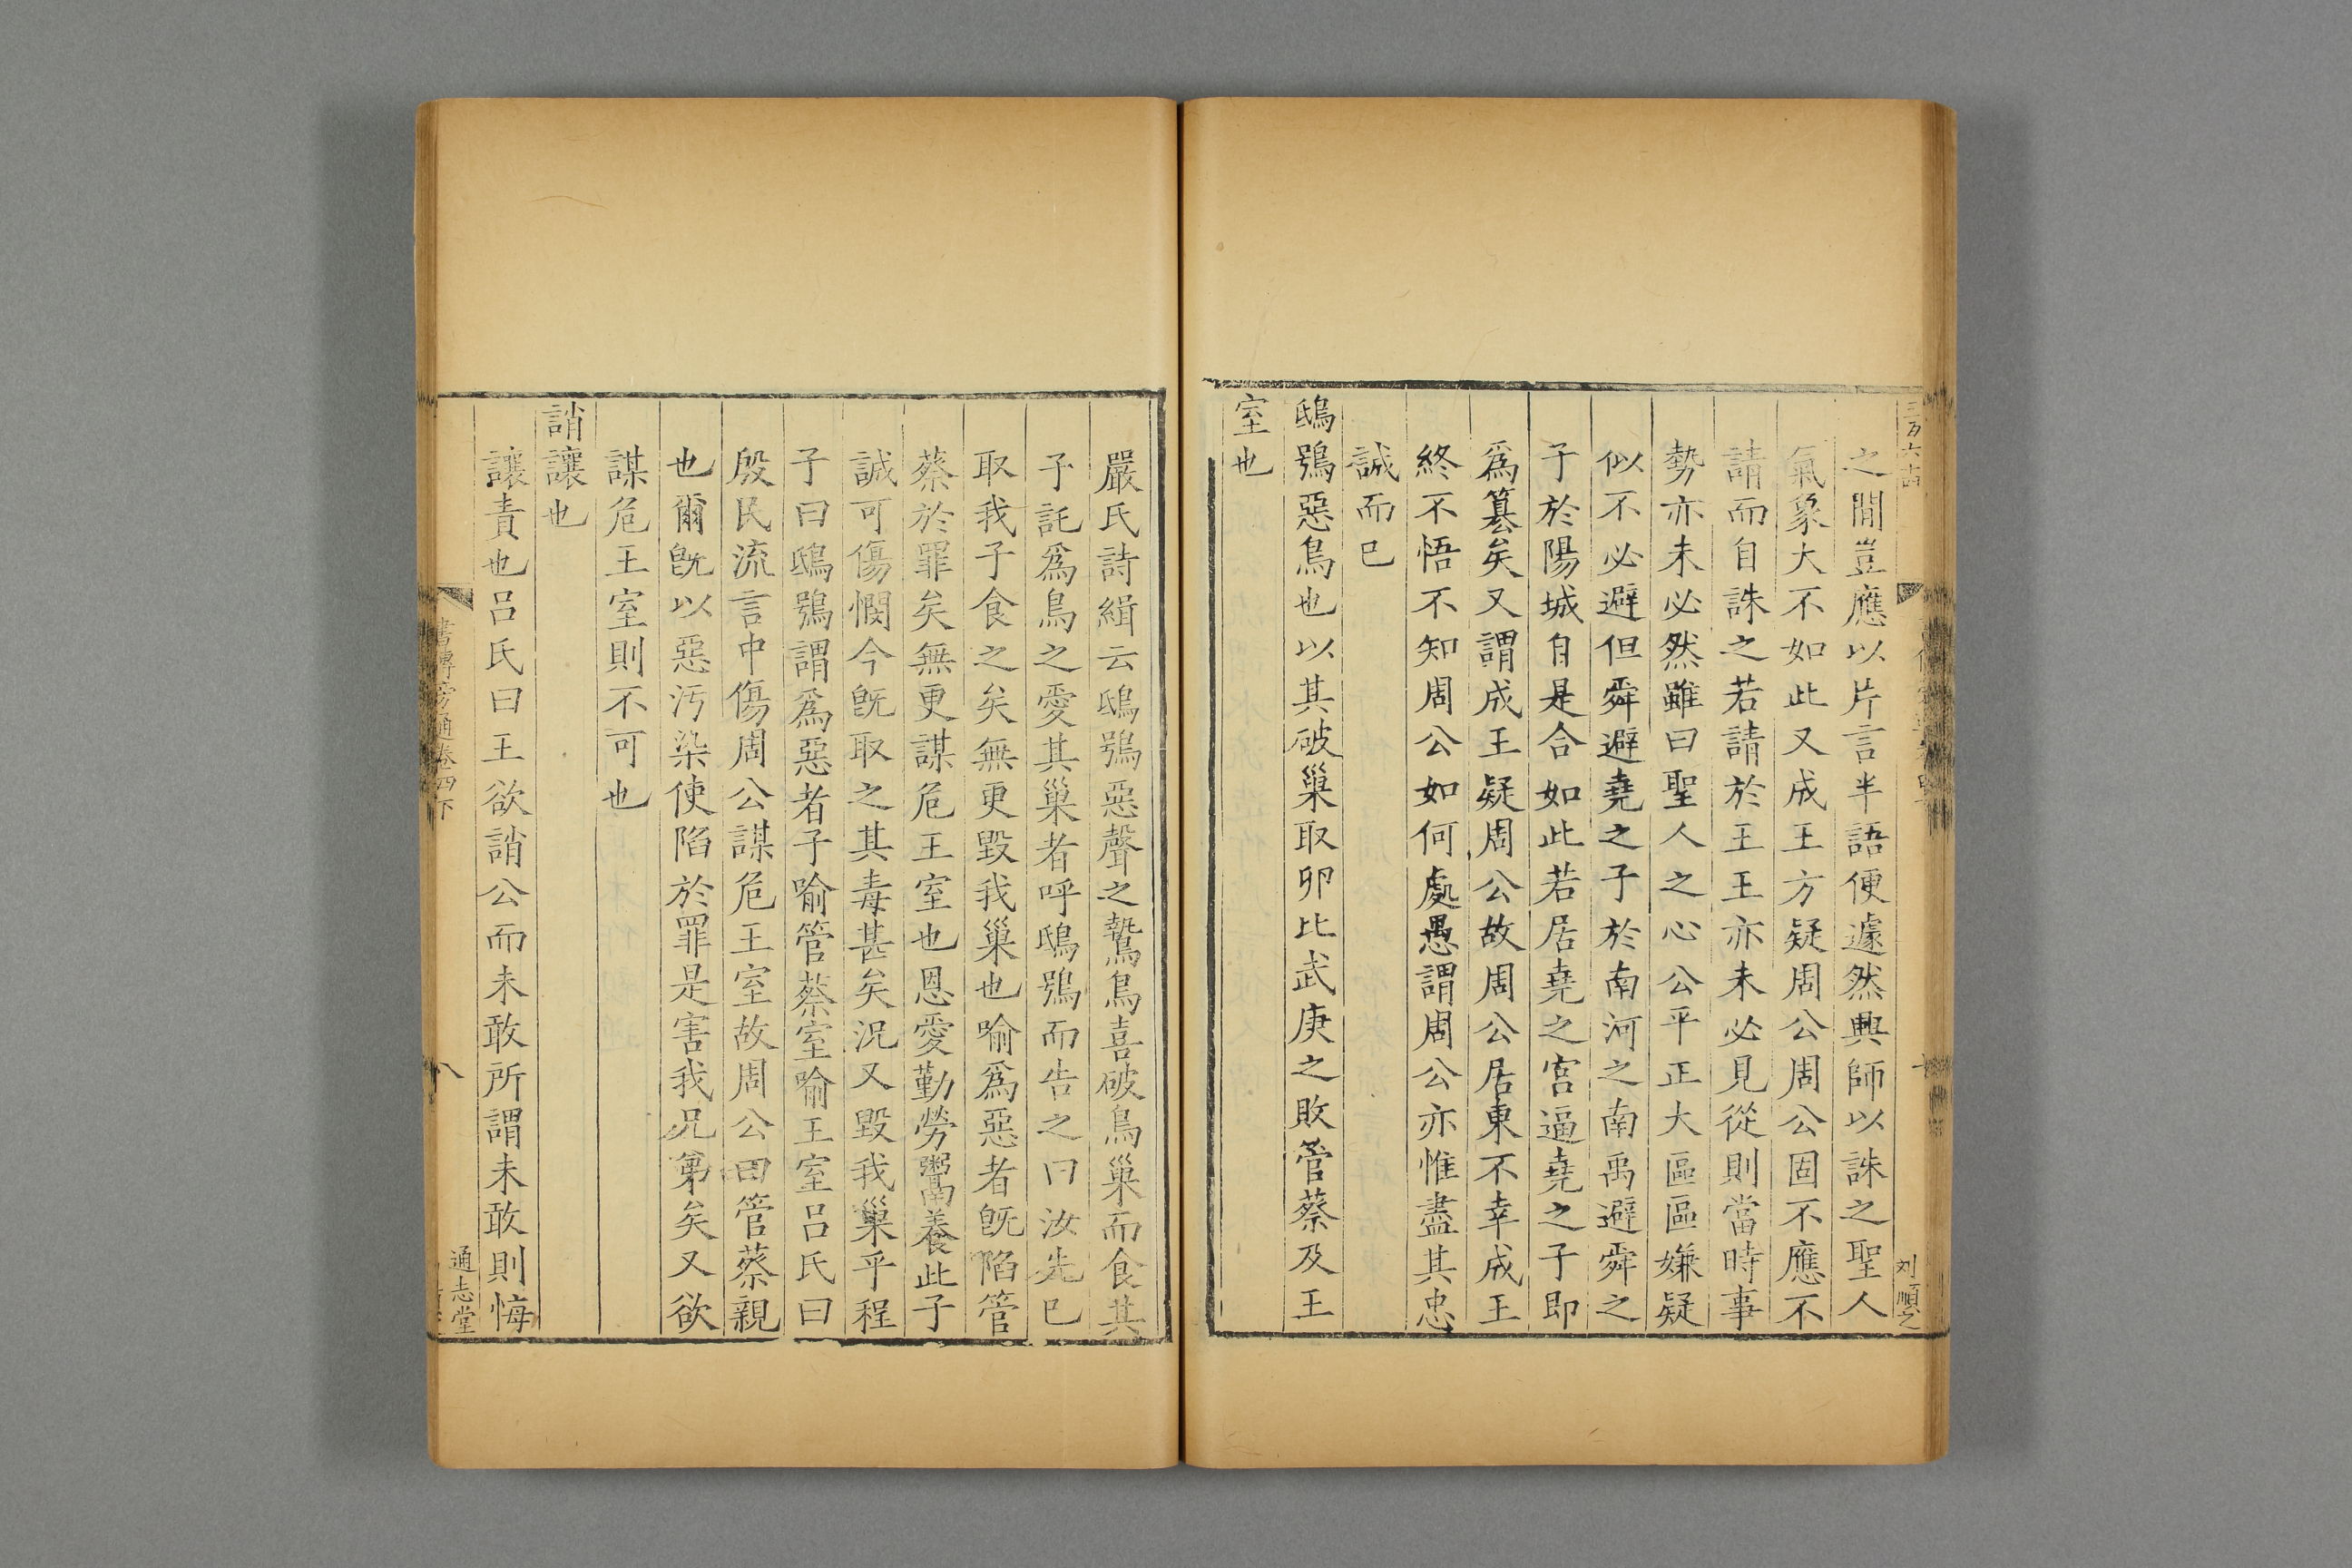 之間豈應以片言半語便遽然興師以誅之聖人
氣象大不如此又成王方疑周公周公固不應不
請而自誅之若請於王王亦未必見從則當時事
勢亦未必然雖曰聖人之心公平正大區區嫌疑
似不必避但舜避堯之子於南河之南禹避舜之
子於陽城自是合如此若居堯之宮逼堯之子即
爲簒矣又謂成王疑周公故周公居東不幸成王
終不悟不知周公如何處愚謂周公亦惟盡其忠
誠而已
鴟鴞惡鳥也以其破巢取卵比武庚之敗管蔡及王
室也
刘順之
嚴氏詩緝云鴟鴞惡聲之鷙鳥喜破鳥巢而食其
子託爲鳥之愛其巢者呼鴟鴞而告之曰汝先已
取我子食之矣無更毀我巢也喻爲惡者旣陷管
蔡於罪矣無更謀危王室也恩愛勤勞鬻養此子
誠可傷憫今旣取之其毒甚矣況又毀我巢乎程
子曰鴟鴞謂爲惡者子喻管蔡室喻王室呂氏曰
殷民流言中傷周公謀危王室故周公曰管蔡親
也爾旣以惡汚染使陷於罪是害我兄第矣又欲
謀危王室則不可也
誚讓也
讓責也呂氏曰王欲誚公而未敢所謂未敢則悔
書傳旁通卷四下
八
通志堂